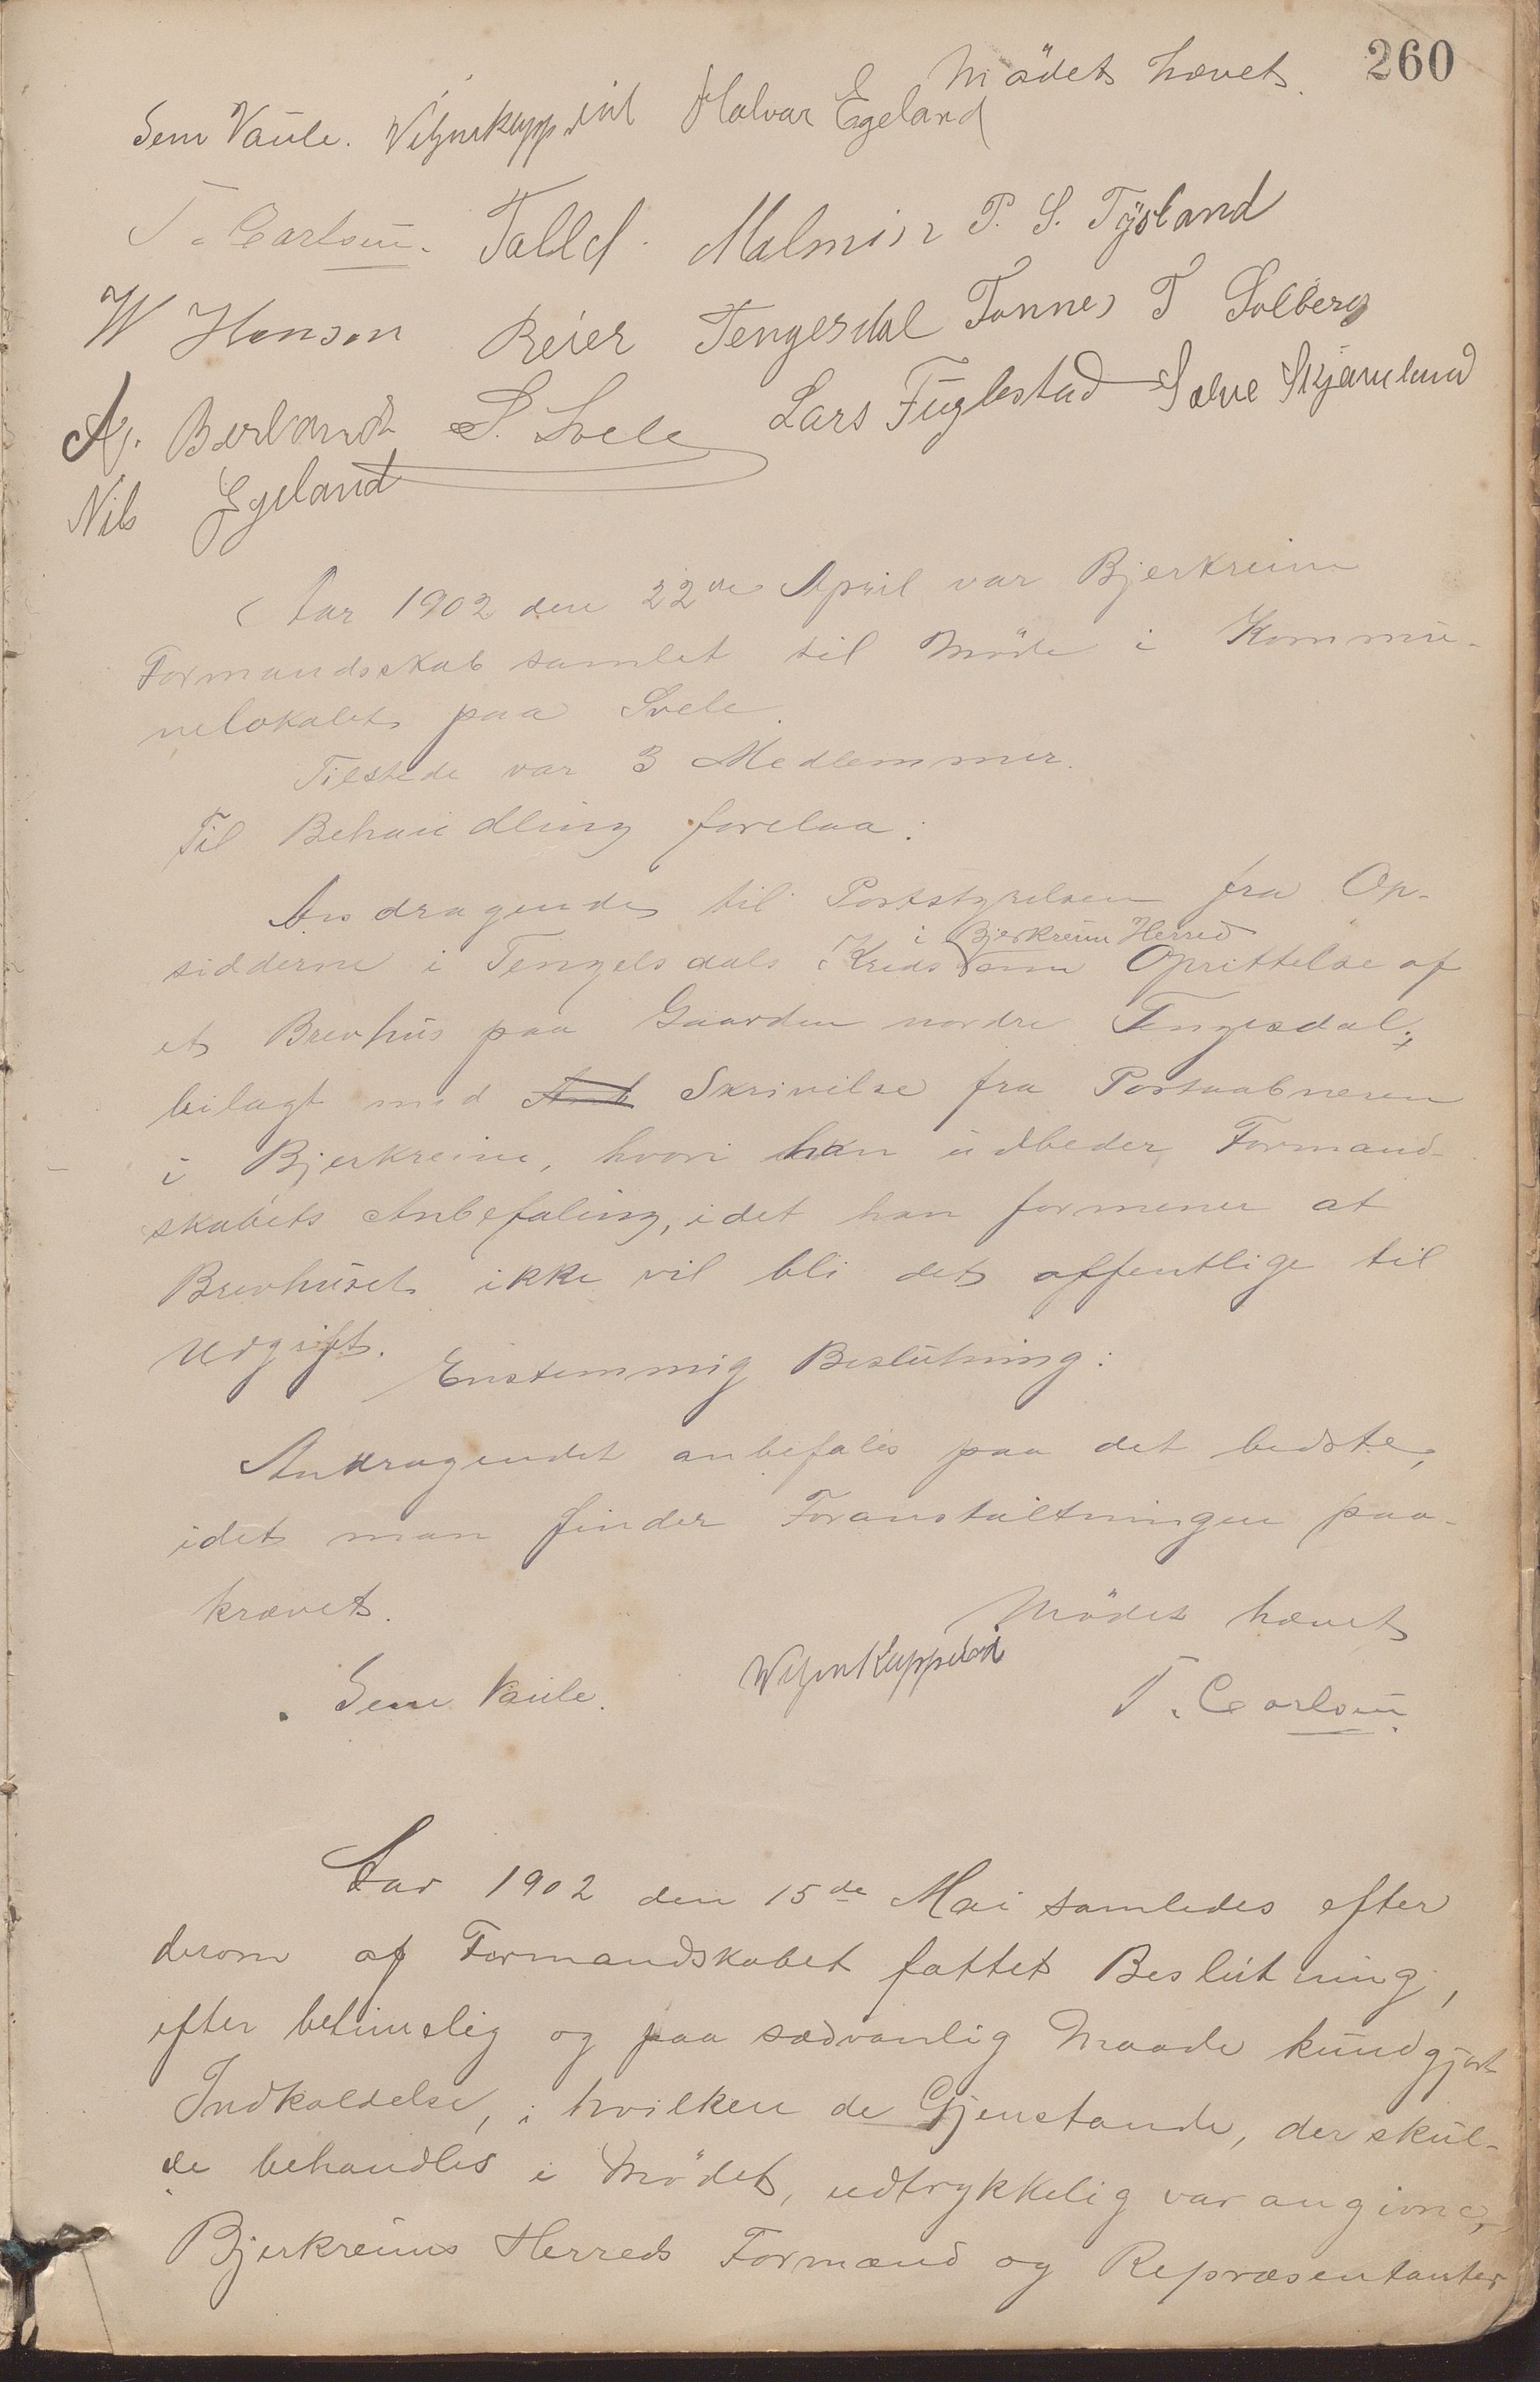 260
Mödet hævet.
Sem Vaule. Halvar Egeland
T. Carlsen. Talld. Malmin P. S. Tÿsland
W Hanson Reier Tengesdal Tönnes T Solberg
A. Berland S. Svele Lars Fuglestad Salve Skjæveland
Nils Egeland
Aar 1902 den 22de April var Bjerkreim
Formandsskab samlet til Möde i Kommu-
nelokalet paa Svele.
Tilstede var 3 Medlemmer.
Til Behandling forelaa:
Andragende til Poststyrelsen fra Op-
i Bjerkreim Herred
sidderne i Tengelsdals Kreds om Oprettelse af
et Brevhus paa Gaarden nordre Tengesdal,
bilagt med Skrivelse fra Postaabneren
i Bjerkreim, hvori han udbeder Formand-
skabets Anbefaling, idet han formener at
Brevhuset ikke vil bli det offentlige til
Udgift.
Enstemmig Beslutning:
Andragendet anbefales paa det bedste,
idet man finder Foranstaltningen paa-
krævet.
Mödet hævet
Sem Vaule. T. Carlsen.
Aar 1902 den 15de Mai samledes efter
derom af Formandskabet fattet Beslutning,
efter betimelig og paa sædvanlig Maade kundgjort
Indkaldelse, i hvilken de Gjenstande, der skul-
de behandles i Mödet, udtrykkelig var angivne,
Bjerkreims Herreds Formænd og Repræsentanter